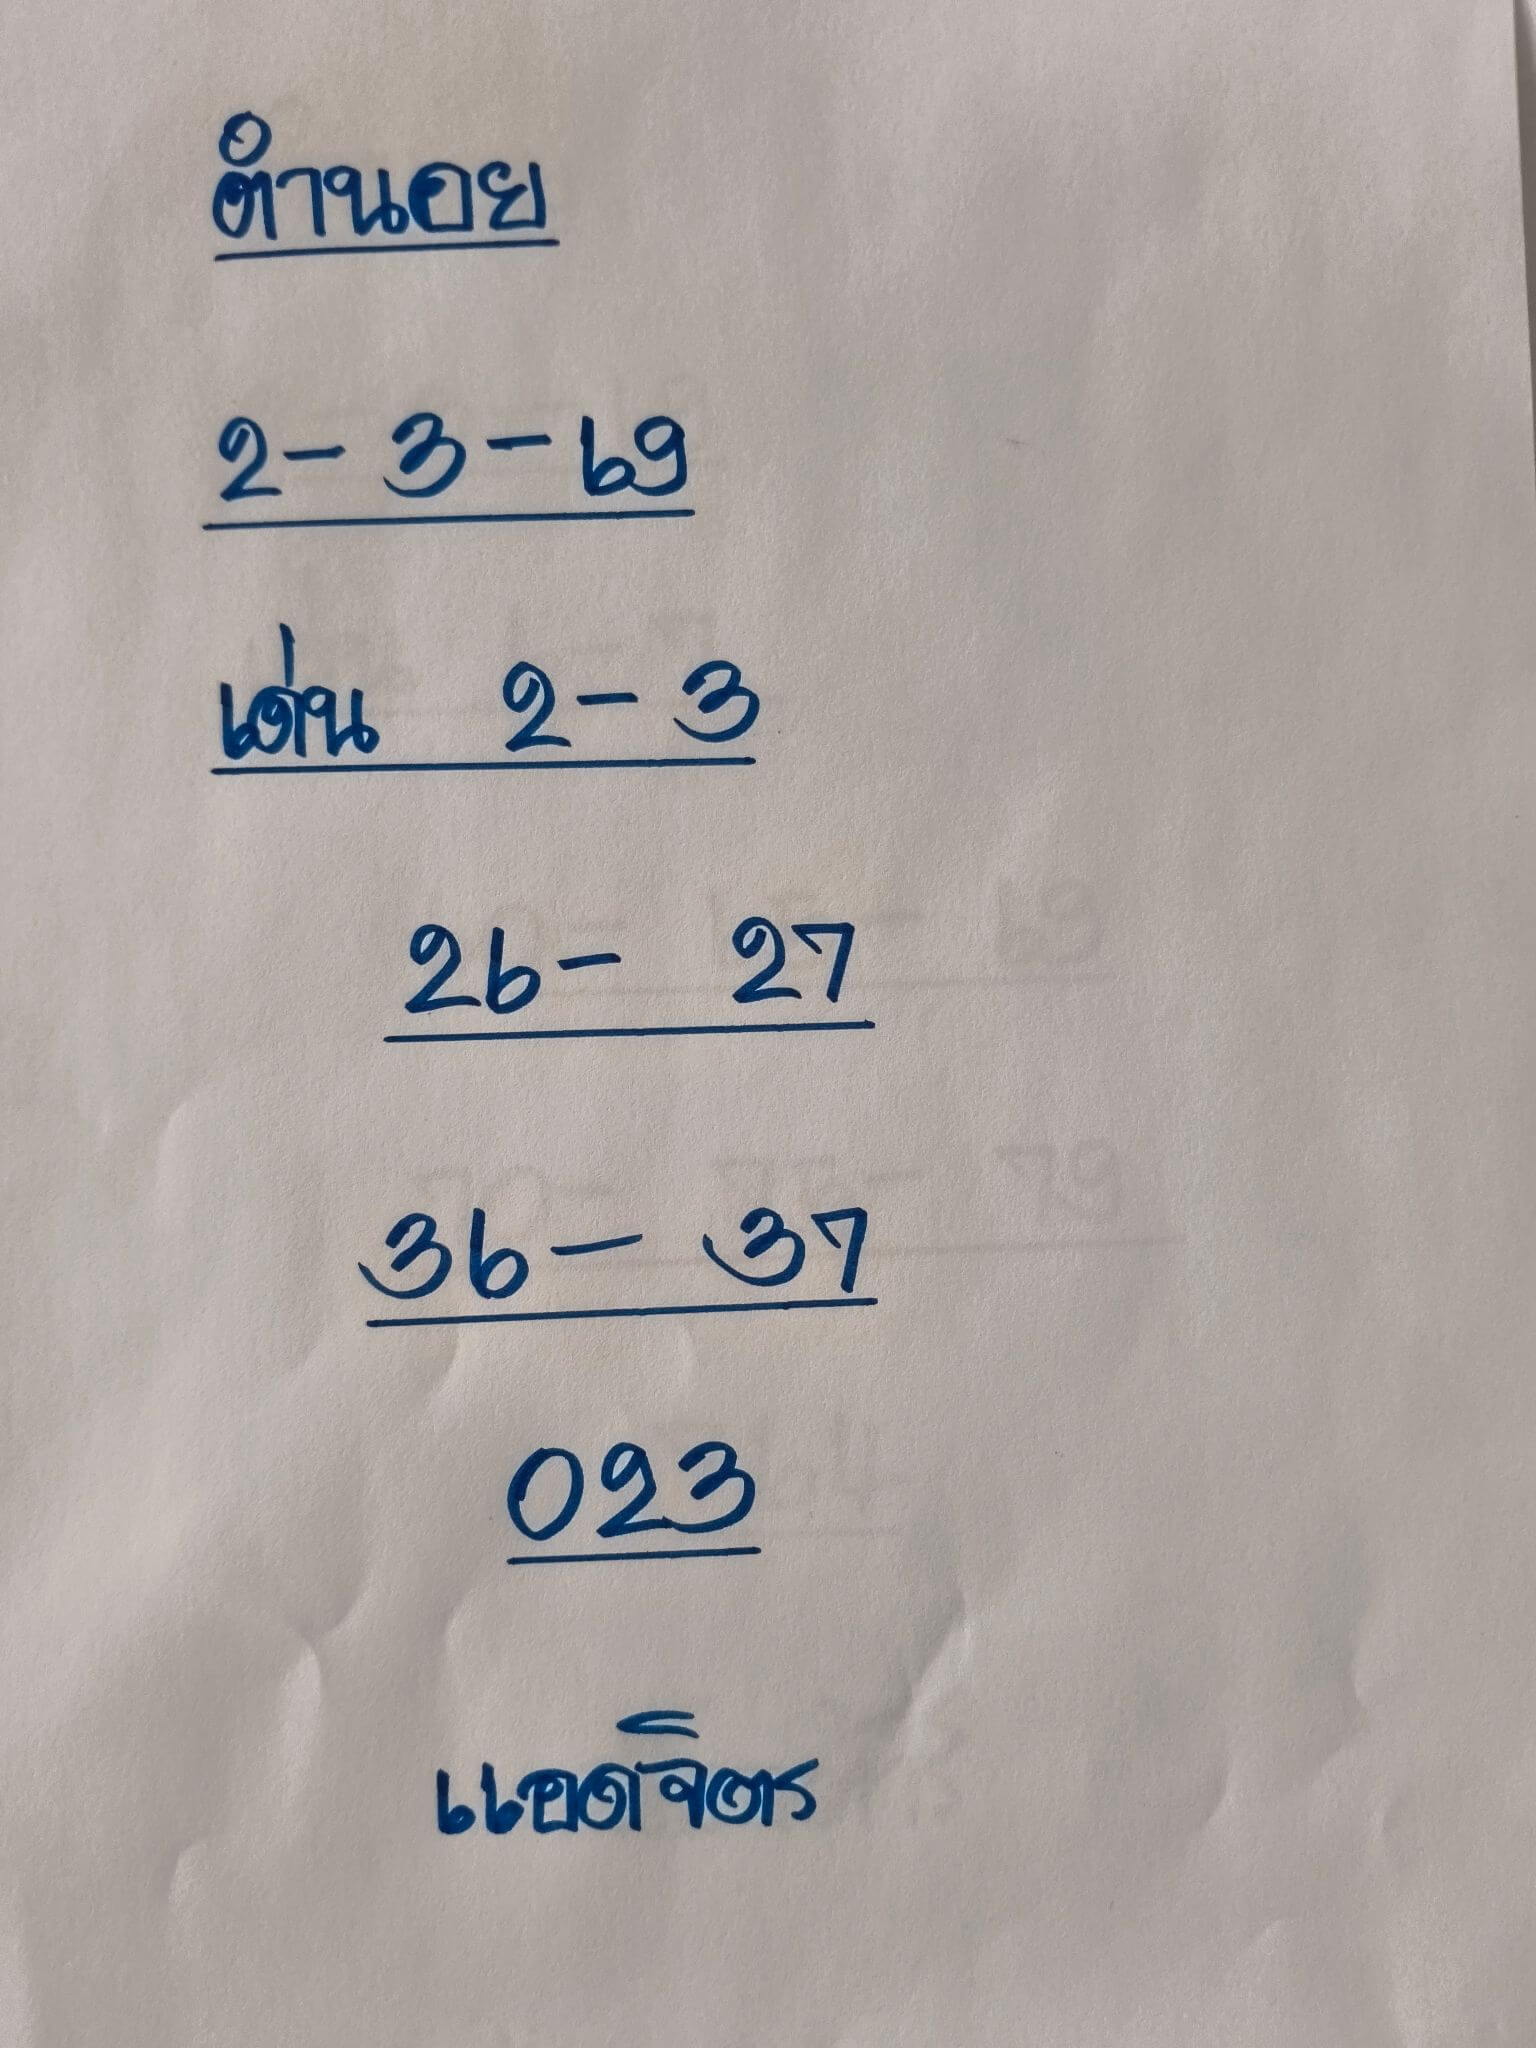 ตำนอย
2-3-69
เด่น 2-3
26- 27
36- 37
023
แอดจิตร